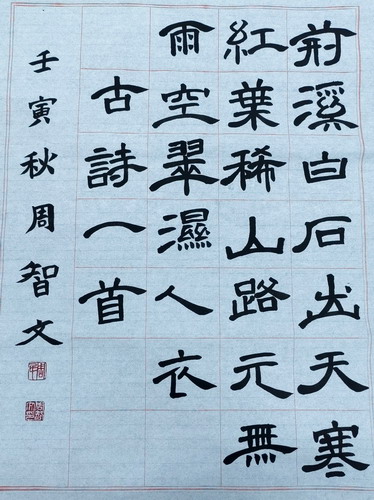 荊溪白石出天寒
紅葉稀山路元無
雨空翠濕人衣
古詩一首
壬寅秋周智文